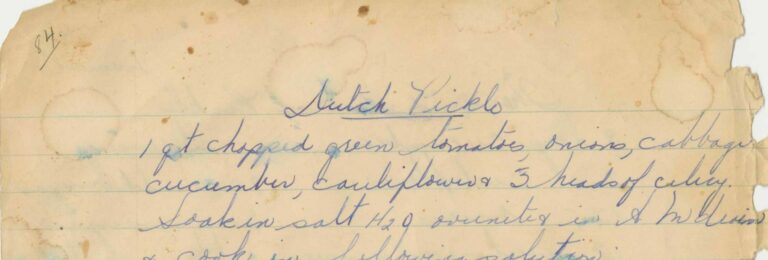 84.
Dutch Pickle
1 qt chopped green tomatoes, onions, cabbage
cucumber, cauliflower & 3 heads of celery.
Soak in salt H2O overnite & in A M drain
& cook in following solution.